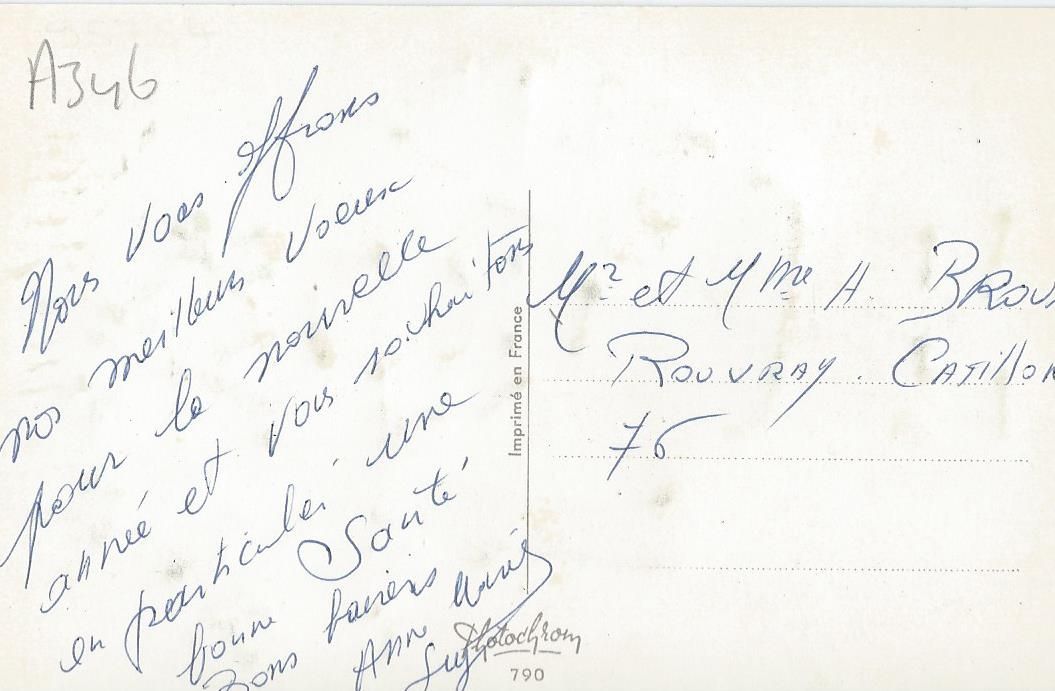 A346
Nous vous offrons
nos meilleurs voeux
pour la nouvelle
année et vous souhaitons
en particulier une
bonne Santé
Bons baisers
Anne Marie
Guy
Imprimé en France
Photochrom
790
Mr et Mme H. BROU
ROUVRAY. CATillON
76